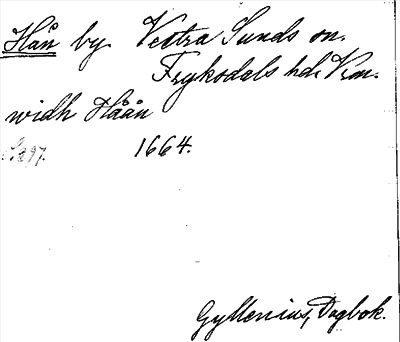 Hån by Vestra Sunds sn.
Fryksdals hd. Vrm.
widh Håån
S. 297. 1664.
Gyllenius, Dagbok.